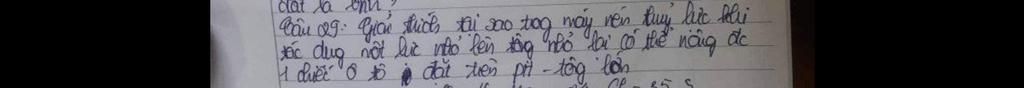 đất là thu?
Câu 29: Giải thích tại sao tog máy nén thuỷ lực khi
tác dụg một lực nhỏ lên tôg nhỏ lại có thể nâng đc
1 chiếc ô tô đặt trên pit-tôg lớn